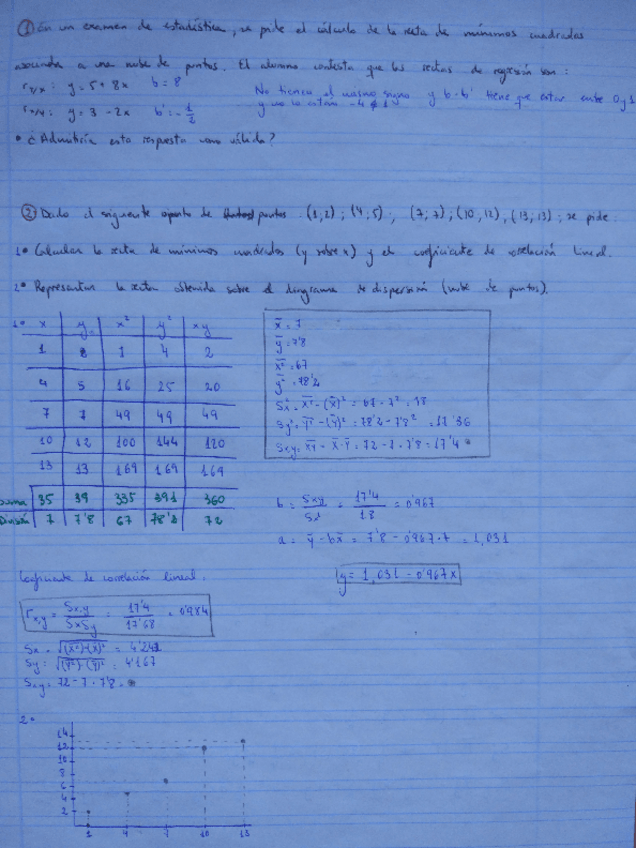 ① En un examen de estadística, se pide el cálculo de la recta de mínimos cuadrados
asociada a una nube de puntos. El alumno contesta que las rectas de regresión son:
r y/x : y = 5 + 8x b = 8 No tienen el mismo signo y b·b' tiene que estar entre 0 y 1
r x/y : y = 3 - 2x b' = -1/2 y no lo están -4 ∉ 1
• ¿Admitiría esta respuesta como válida?
② Dado el siguiente de puntos: (1,2); (4,5); (7,7); (10,12), (13,13); se pide:
1• Calcular la recta de mínimos cuadrados (y sobre x) y el coeficiente de correlación lineal.
2• Representar la recta obtenida sobre el diagrama de dispersión (nube de puntos).
1• x y x² y² xy
1 2 1 4 2
4 5 16 25 20
7 7 49 49 49
10 12 100 144 120
13 13 169 169 169
suma 35 39 335 391 360
División 7 7'8 67 78'2 72
x̄ = 7
ȳ = 7'8
x̄² = 67
ȳ² = 78'2
Sx² = x̄² - (x̄)² = 67 - 7² = 18
Sy² = ȳ² - (ȳ)² = 78'2 - 7'8² = 17'36
Sxy = x̄y - x̄·ȳ = 72 - 7·7'8 = 17'4 *
b = Sxy/Sx² = 17'4/18 = 0'967
a = ȳ - bx̄ = 7'8 - 0'967·7 = 1,031
y = 1,031 - 0'967x
Coeficiente de correlación lineal.
r x,y = Sx,y/SxSy = 17'4/17'68 = 0'984
Sx = √(x̄²)-(x̄)² = 4'242
Sy = √(ȳ²)-(ȳ)² = 4'167
Sxy = 72 - 7·7'8 = *
2•
14
12
10
8
6
4
2
1 4 7 10 13